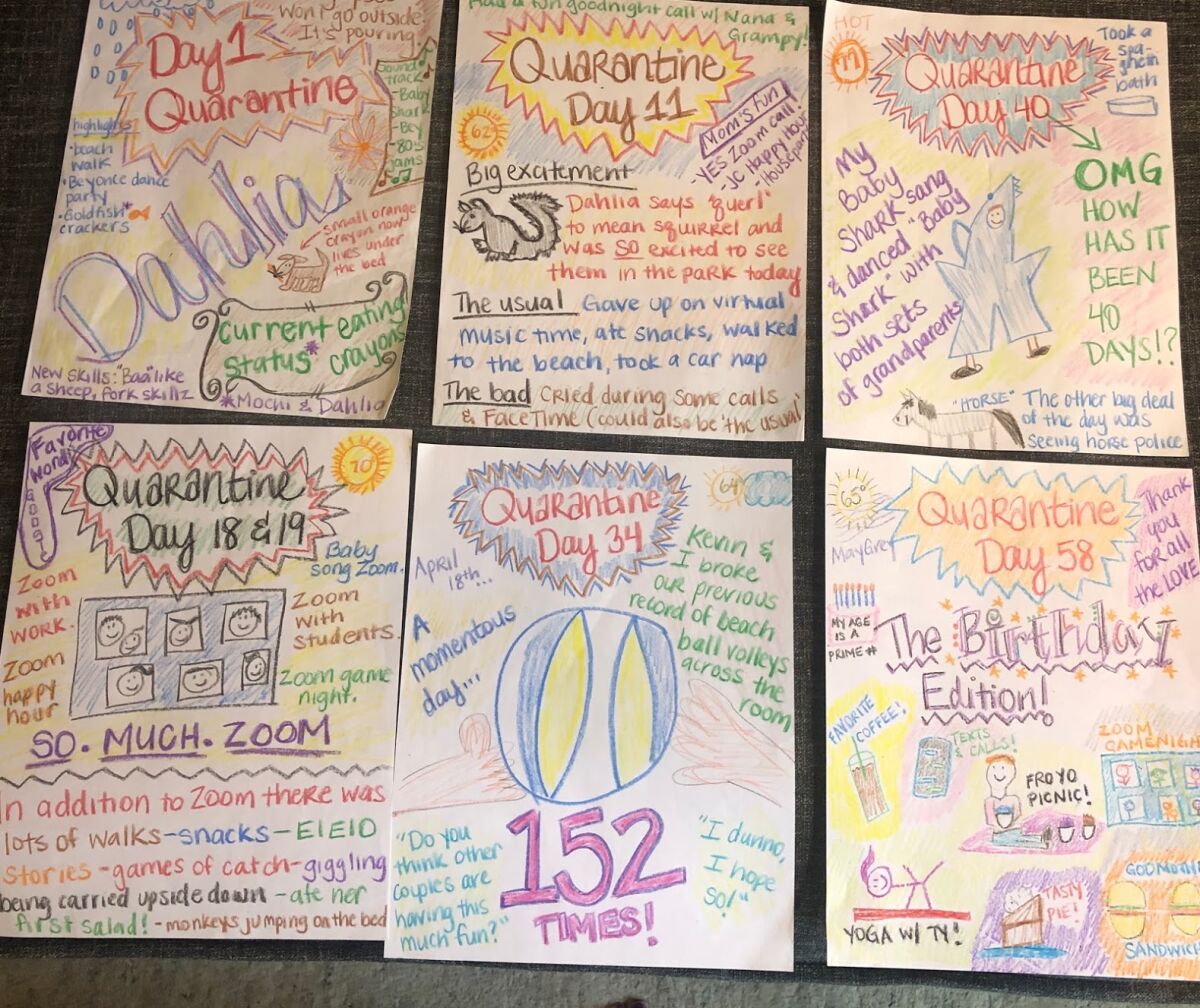 Won't go outside.
It's pouring!
Day 1
Quarantine
Sound
track
-Baby
Shark
-Bey
-80's
jams
highlights
•beach
walk
•Beyonce dance
party
•Goldfish*
crackers
Dahlia
small orange
crayon now
lives under
the bed
current eating
status* crayons
New skills: "Baa" like
a sheep, fork skillz
*Mochi & Dahlia
Had a fun goodnight call w/ Nana &
Grampy!
Quarantine
Day 11
62°
Mom's fun
-YES Zoom call!
-JC Happy Hour
-Houseparty
Big excitement
Dahlia says "querl"
to mean squirrel and
was SO excited to see
them in the park today
The usual Gave up on virtual
music time, ate snacks, walked
to the beach, took a car nap
The bad Cried during some calls
& FaceTime (could also be "the usual"
HOT
77
Quarantine
Day 40
Took a
spa-
ghetti
bath
My
Baby
Shark sang
& danced "Baby
Shark" with
both sets
of grandparents
OMG
HOW
HAS IT
BEEN
40
DAYS!?
"HORSE"
The other big deal
of the day was
seeing horse police
Favorite
word
Quarantine
Day 18 & 19
70
Zoom
with
work.
Zoom
happy
hour
Baby
song Zoom.
Zoom
with
students.
Zoom game
night.
SO. MUCH. ZOOM
In addition to Zoom there was
lots of walks-snacks-EIEIO
Stories-games of catch-giggling
being carried upside down-ate her
first salad!-monkeys jumping on the bed
Quarantine
Day 34
64
April
18th...
A
momentous
day...
Kevin &
I broke
our previous
record of beach
ball volleys
across the
room
152
TIMES!
"Do you
think other
couples are
having this
much fun?"
"I dunno,
I hope
so!"
65°
May Grey
Quarantine
Day 58
Thank
you
for all
the LOVE
MY AGE
IS A
PRIME #
The Birthday
Edition!
FAVORITE
COFFEE!
TEXTS
& CALLS!
FROYO
PICNIC!
ZOOM
GAMENIGHT
YOGA W/ TY!
TASTY
PIE!
SANDWICH